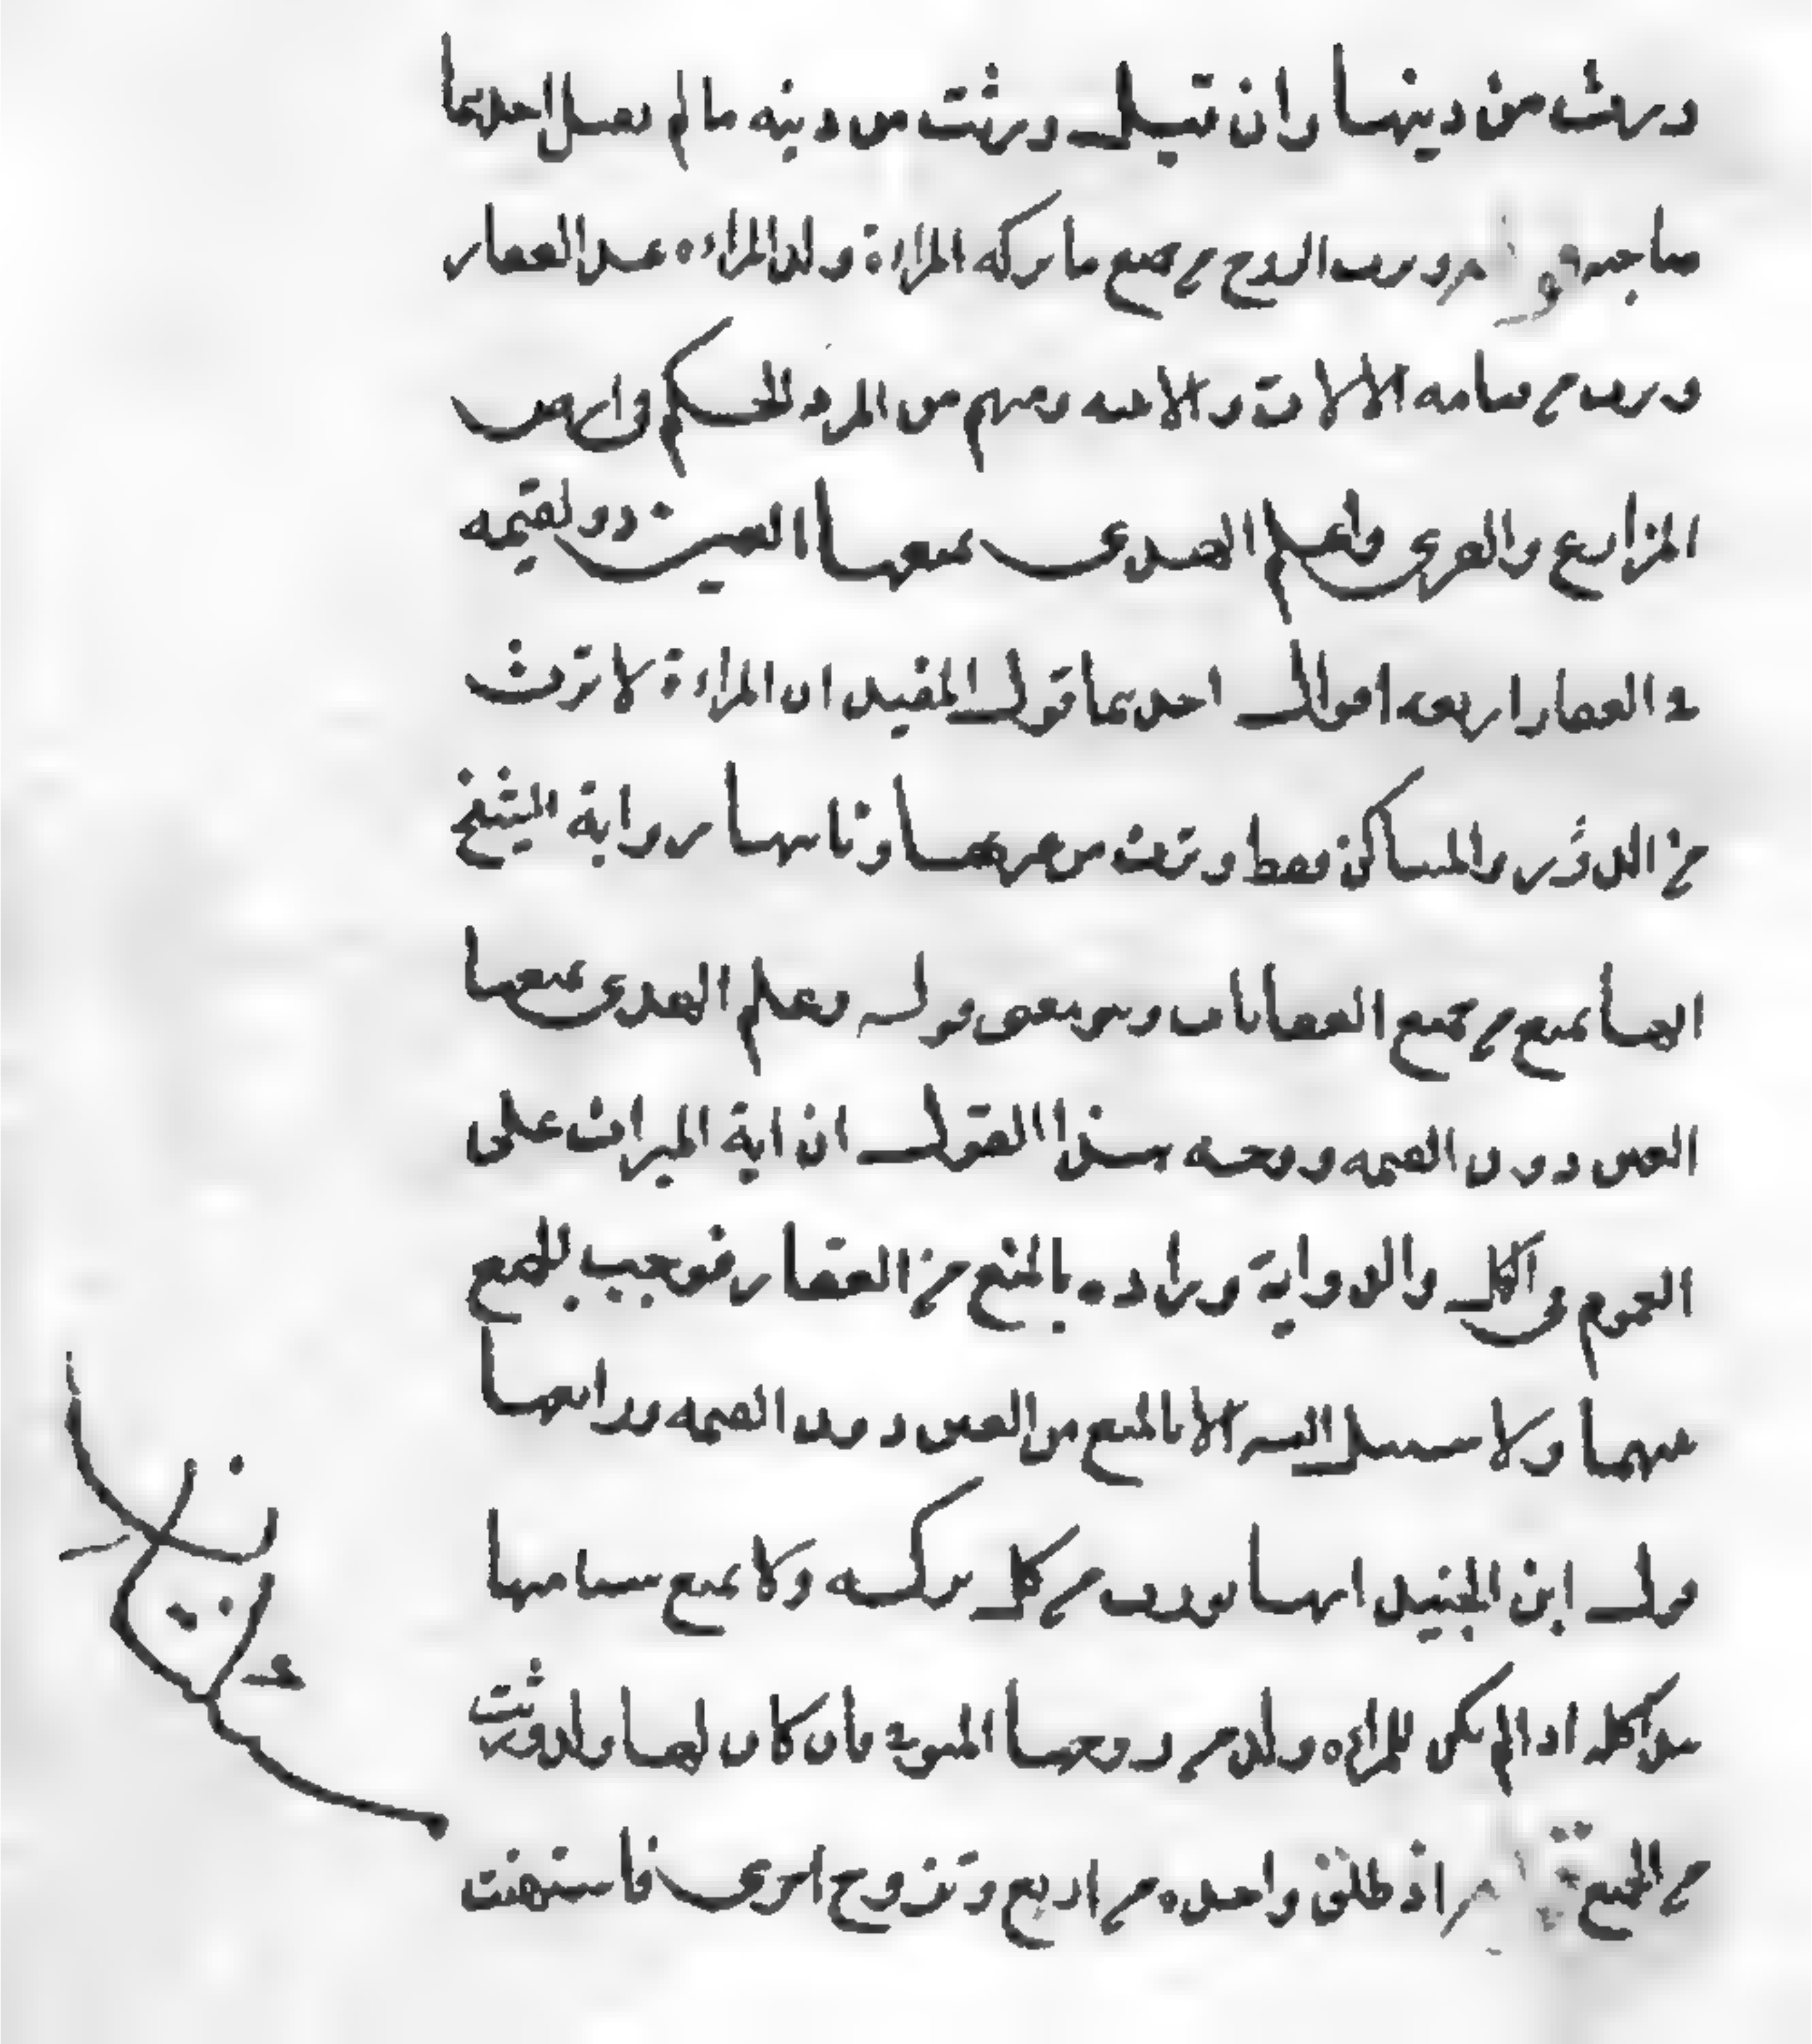 ورث من ديتها وان قتل ورثت من ديته ما لم يقتل احدهما
صاحبه ويرث الزوج من جميع ما تركه المراءة ولد المراءه عدا العقار
وترث من قيمة الالات والابنيه ومنهم من طرد الحكم في ارض
المزارع والقرى وعلم الهدى يمنعها العين دون القيمه
في العقار اربعه اقوال احدهما قول المفيد ان المراءة لا ترث
من الدور والمساكن فقط وترث من غيرهما وثانيها رواية الشيخ
انها تمنع من جميع العقارات وهو معنى قوله وعلم الهدى يمنعها
العين دون القيمه ووجه هذا القول ان اية الميراث على
العموم في الكل والرواية وارده بالمنع من العقار فوجب الجمع
بينهما ولا سبيل اليه الا بالمنع من العين دون القيمه ورابعها
قول ابن الجنيد انها تورث من كل تركته ولا تمنع شيئا منها
هذا كله اذا لم يكن للمراءه ولد من زوجها المتوفى فان كان لها ولد ورثت
من الجميع اذ طلق واحده من اربع وتزوج اخرى فاشتبهت